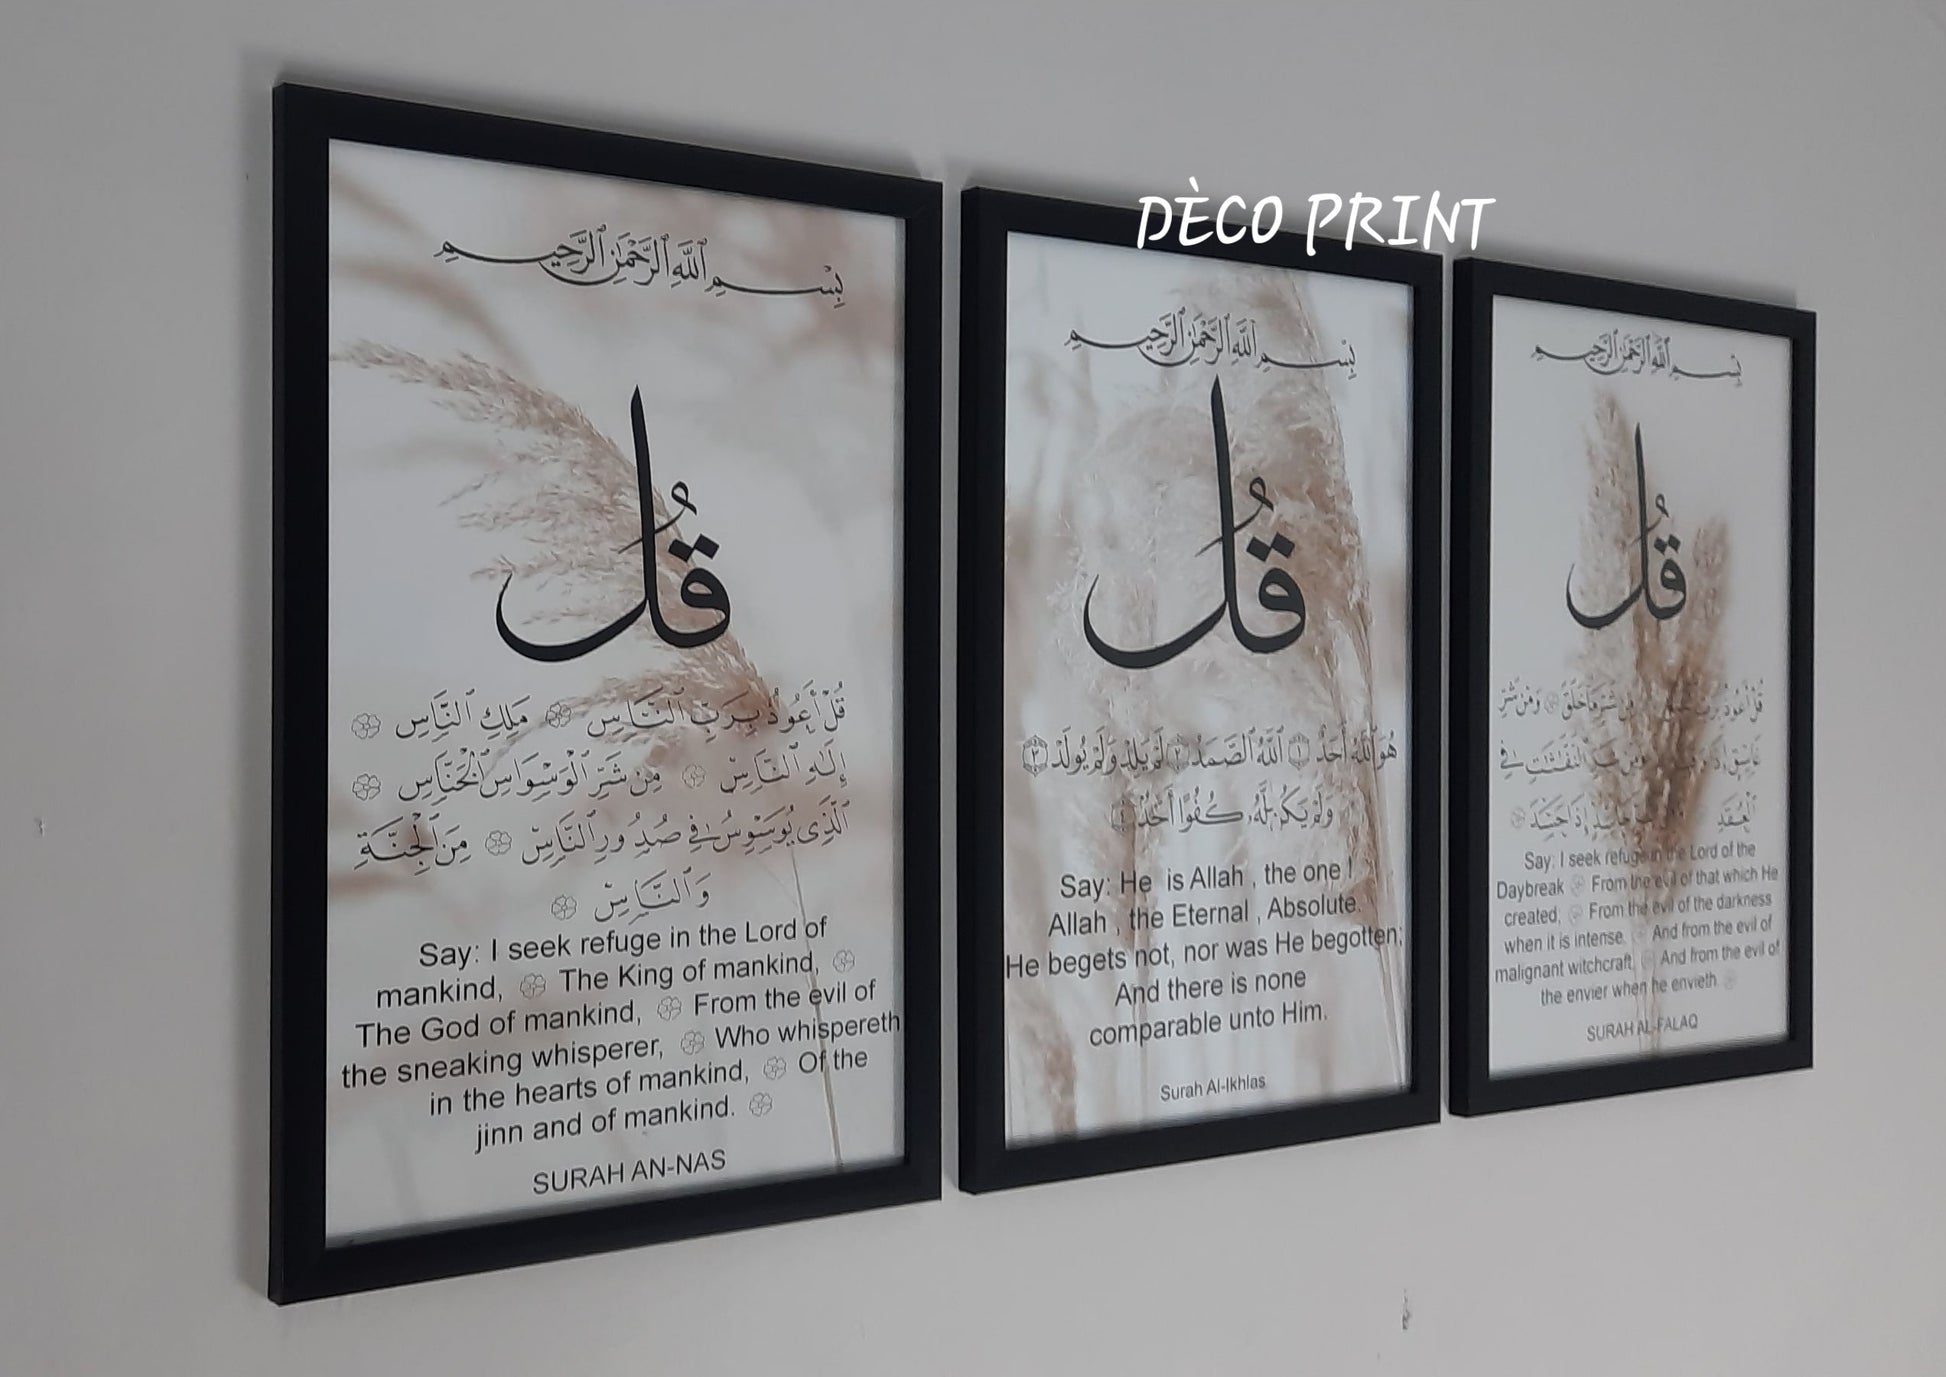 DÈCO PRINT
بِسْمِ ٱللَّهِ ٱلرَّحْمَٰنِ ٱلرَّحِيمِ
قُلْ
قُلْ أَعُوذُ بِرَبِّ ٱلنَّاسِ ۝ مَلِكِ ٱلنَّاسِ ۝
إِلَٰهِ ٱلنَّاسِ ۝ مِن شَرِّ ٱلْوَسْوَاسِ ٱلْخَنَّاسِ ۝
ٱلَّذِى يُوَسْوِسُ فِى صُدُورِ ٱلنَّاسِ ۝ مِنَ ٱلْجِنَّةِ
وَٱلنَّاسِ ۝
Say: I seek refuge in the Lord of
mankind, ۝ The King of mankind, ۝
The God of mankind, ۝ From the evil of
the sneaking whisperer, ۝ Who whispereth
in the hearts of mankind, ۝ Of the
jinn and of mankind. ۝
SURAH AN-NAS
بِسْمِ ٱللَّهِ ٱلرَّحْمَٰنِ ٱلرَّحِيمِ
قُلْ
هُوَ ٱللَّهُ أَحَدٌ ١ ٱللَّهُ ٱلصَّمَدُ ٢ لَمْ يَلِدْ وَلَمْ يُولَدْ ٣
وَلَمْ يَكُن لَّهُۥ كُفُوًا أَحَدٌ ٤
Say: He is Allah , the one !
Allah , the Eternal , Absolute.
He begets not, nor was He begotten;
And there is none
comparable unto Him.
Surah Al-Ikhlas
بِسْمِ ٱللَّهِ ٱلرَّحْمَٰنِ ٱلرَّحِيمِ
قُلْ
قُلْ أَعُوذُ بِرَبِّ مِن شَرِّ مَا خَلَقَ ۝ وَمِن شَرِّ
غَاسِقٍ إِذَا ٱلنَّفَّٰثَٰتِ فِى
ٱلْعُقَدِ إِذَا حَسَدَ ۝
Say: I seek refuge in the Lord of the
Daybreak ۝ From the evil of that which He
created; ۝ From the evil of the darkness
when it is intense, ۝ And from the evil of
malignant witchcraft, ۝ And from the evil of
the envier when he envieth. ۝
SURAH AL-FALAQ